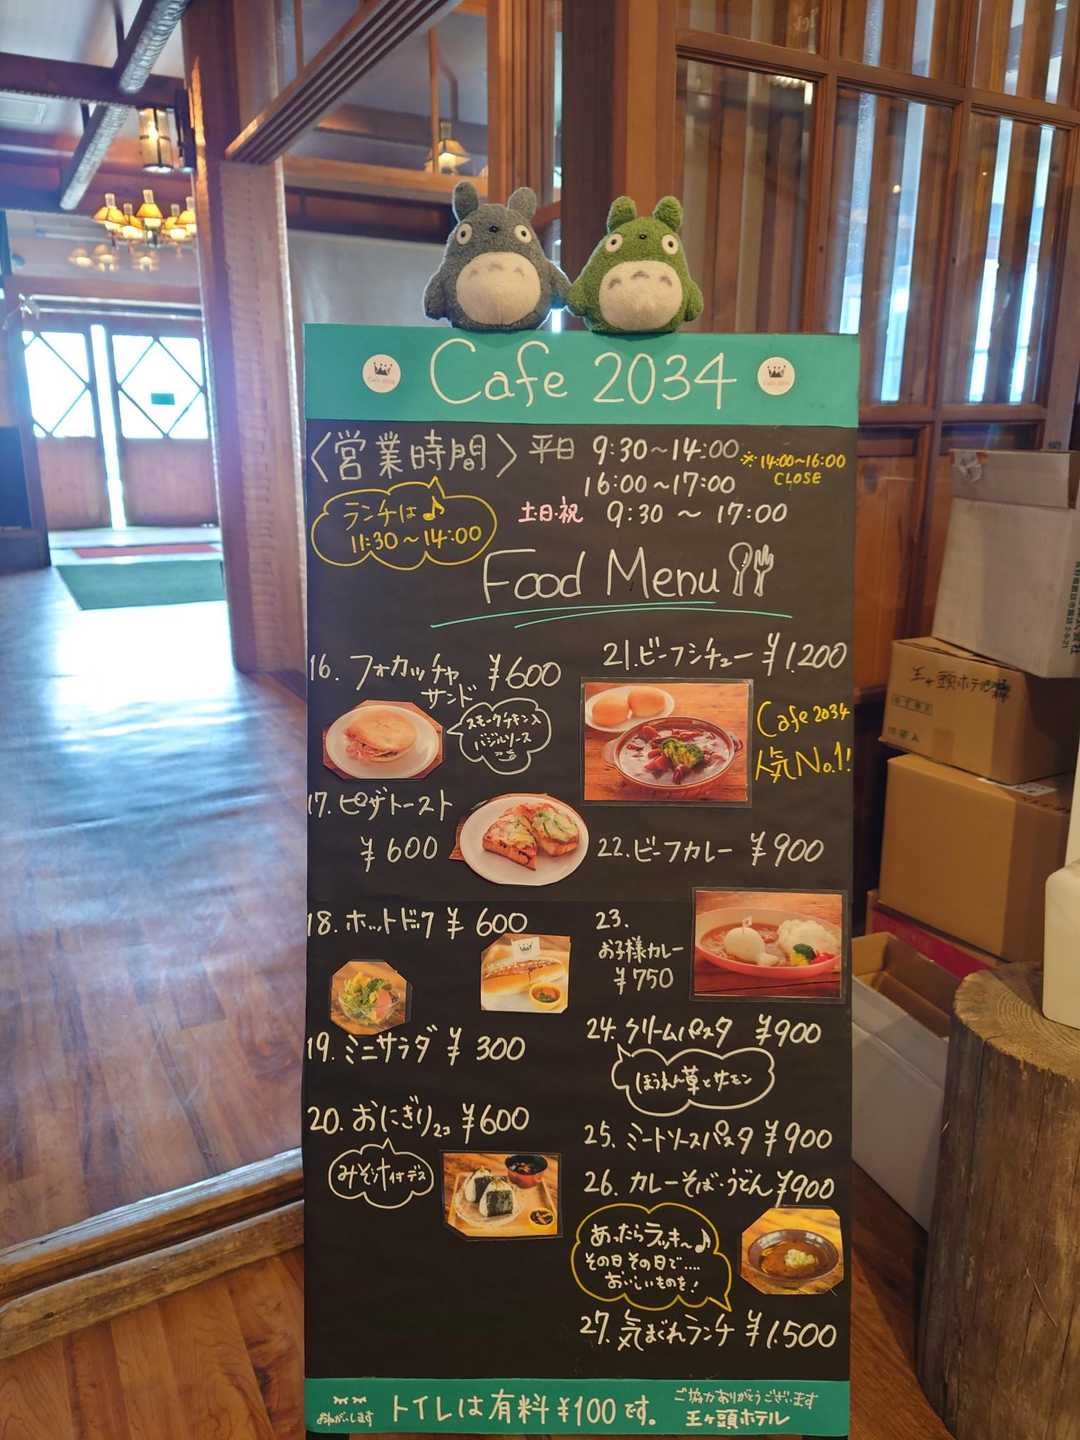 Cafe 2034
〈営業時間〉 平日 9:30~14:00 ※14:00~16:00
CLOSE
16:00~17:00
土日・祝 9:30 ~ 17:00
ランチは♪
11:30~14:00
Food Menu
16. フォカッチャサンド ¥600
スモークチキン入
バジルソース
17. ピザトースト
¥600
18. ホットドック ¥600
19. ミニサラダ ¥300
20. おにぎり2コ ¥600
みそ汁付デス
21. ビーフシチュー ¥1.200
Cafe 2034
人気No.1!
22. ビーフカレー ¥900
23.
お子様カレー
¥750
24. クリームパスタ ¥900
ほうれん草とサーモン
25. ミートソースパスタ ¥900
26. カレーそば・うどん ¥900
あったらラッキ〜♪
その日その日で....
おいしいものを!
27. 気まぐれランチ ¥1.500
お願いします
トイレは有料¥100です。
ご協力ありがとうございます
王ヶ頭ホテル
王ヶ頭ホテル様